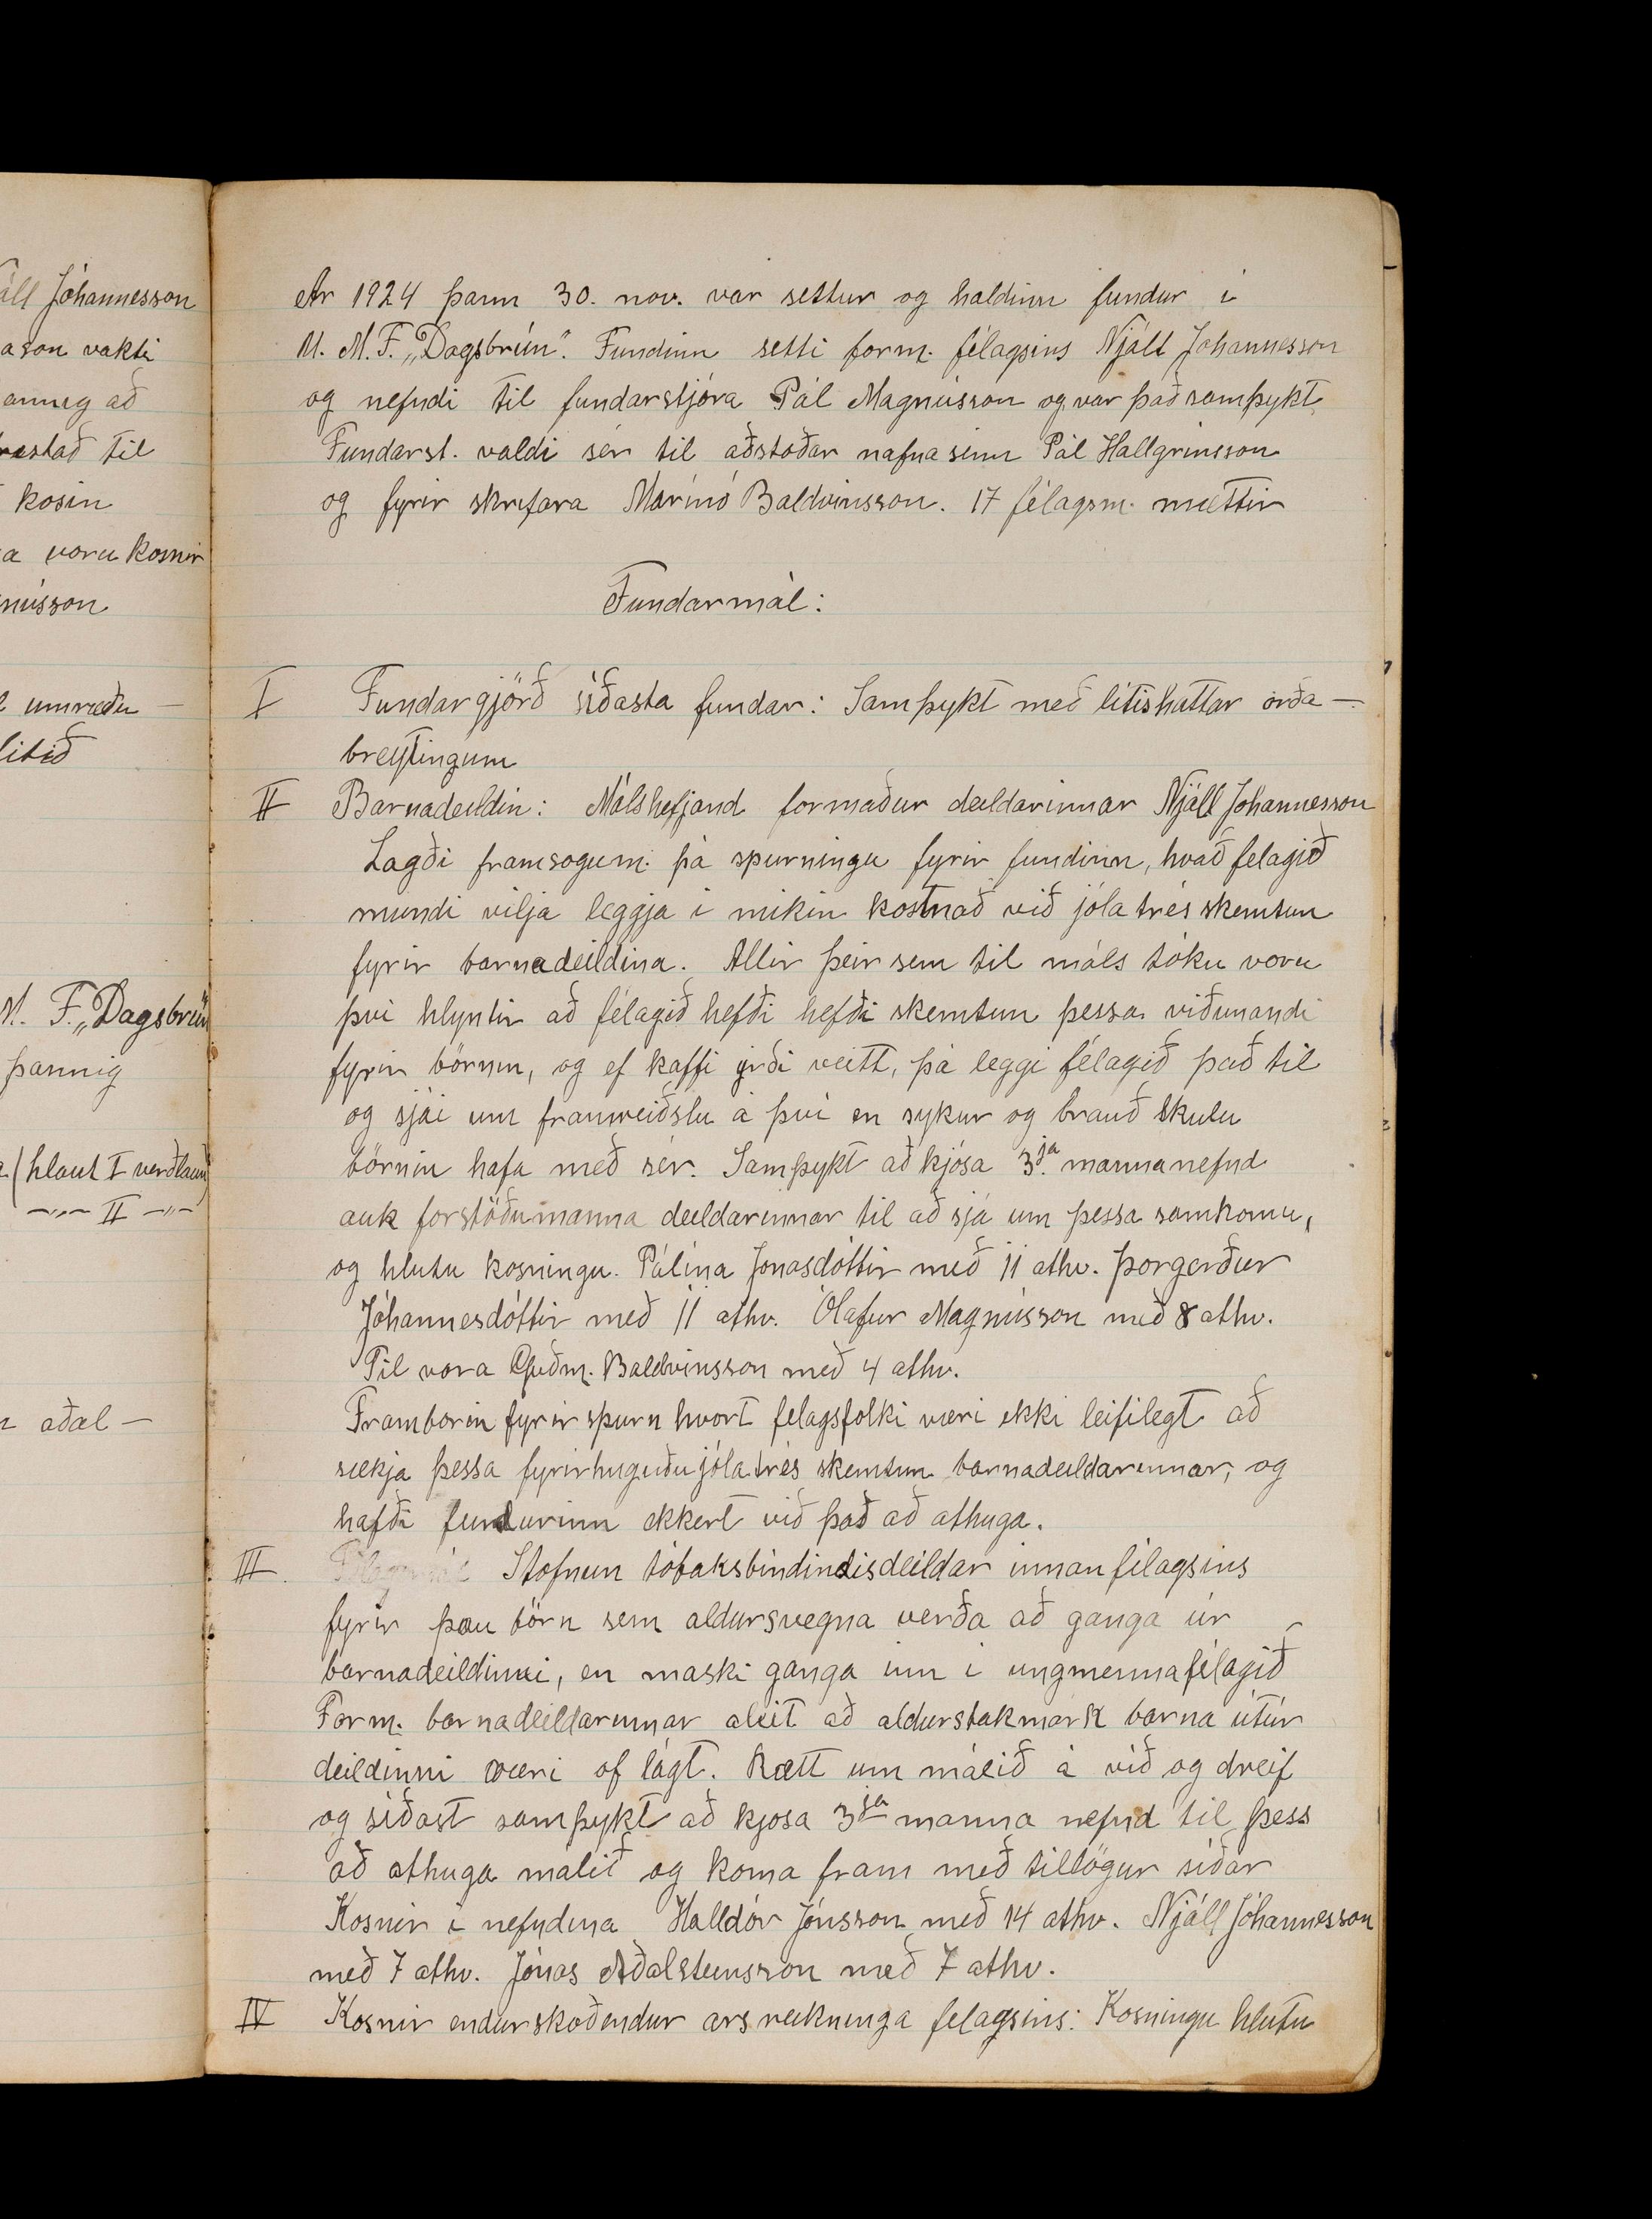 áll Jóhannesson
ason vakti
annig að
kosin
a voru kosnir
nússon
umræðu —
litið
M. F. „Dagsbrún
þannig
(hlaut I verðlaun)
—„— II —„—
aðal —
Ár 1924 þann 30. nov. var settur og haldinn fundur í
U. M. F. „Dagsbrún“. Fundinn setti form. félagsins Njáll Jóhannesson
og nefndi til fundarstjóra Pál Magnússon og var það samþykt.
Fundarst. valdi sér til aðstoðar nafna sinn Pál Hallgrímsson
og fyrir skrifara Marínó Baldvinsson. 17 félagsm. mættir
Fundarmál:
I Fundargjörð síðasta fundar: Samþykt með lítisháttar orða —
breytingum
II Barnadeildin: Málshefjand formaður deildarinnar Njáll Jóhannesson
Lagði framsögum. þá spurningu fyrir fundinn, hvað felagið
mundi vilja leggja í mikin kostnað við jólatrés skemtun
fyrir barnadeildina. Allir þeir sem til máls tóku voru
því hlyntir að félagið hefði hefði skemtun þessa viðunandi
fyrir börnin, og ef kaffi yrði veitt, þá leggi félagið það til
og sjái um framreiðslu á því en sykur og brauð skulu
börnin hafa með sér. Samþykt að kjósa 3ja manna nefnd
auk forstöðumanna deildarinnar til að sjá um þessa samkomu,
og hlutu kosningu. Pálína Jónasdóttir með 11 atkv. Þorgerður
Jóhannesdóttir með 11 atkv. Ólafur Magnússon með 8 atkv.
Til vara Guðm. Baldvinsson með 4 atkv.
Framborin fyrirspurn hvort felagsfolki væri ekki leifilegt að
sækja þessa fyrirhuguðu jólatrés skemtun barnadeildarinnar, og
hafði fundurinn ekkert við það að athuga.
III. Stofnun tóbaksbindindisdeildar innan félagsins
fyrir þau börn sem aldursvegna verða að ganga úr
barnadeildinni, en máski ganga inn í ungmennafélagið
Form. barnadeildarinnar áleit að aldurstakmark barna útúr
deildinni væri of lágt. Rætt um málið á víð og dreif
og síðast samþykt að kjósa 3ja manna nefnd til þess
að athuga málið og koma fram með tillögur síðar
Kosnir í nefndina Halldór Jónsson með 14 atkv. Njáll Jóhannesson
með 7 atkv. Jónas Aðalsteinsson með 7 atkv.
IV Kosnir endurskoðendur ársreikninga felagsins: Kosningu hlutu